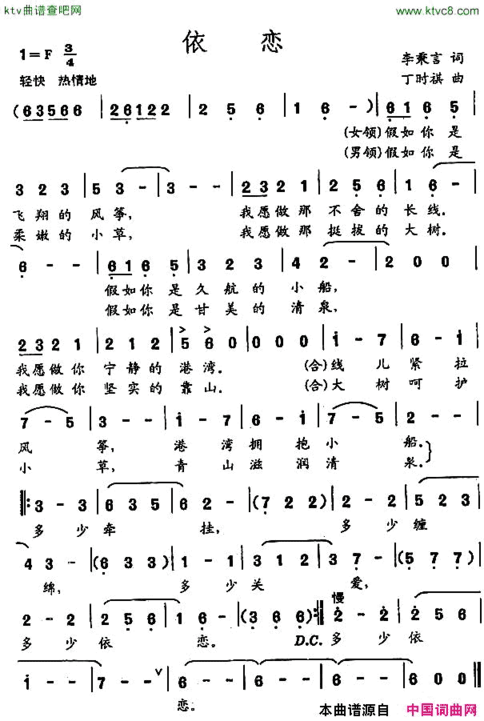 ktv曲谱查吧网
www.ktvc8.com
依 恋
1=F 3/4
李秉言 词
轻快 热情地
丁时祺 曲
(63566 | 26122 | 2 5 6 | 1 6 - ) | 61 6 5 |
(女领)假如你是
(男领)假如你是
3 2 3 | 5 3 - | 3 - - | 2321 | 2 5 6 | 1 2 1 | 6 - |
飞翔的 风筝, 我愿做那 不舍的 长线。
柔嫩的 小草, 我愿做那 挺拔的 大树。
6 - - | 61 6 5 | 3 2 3 | 4 2 - | 2 0 0 |
假如你 是 久航的 小船,
假如你 是 甘美的 清泉,
2 3 2 1 | 2 1 2 | 5 6 0 | 0 0 0 | 1 - 7 | 6 - 5 |
我愿做你 宁静的 港湾。 (合)线 儿 紧 拉
我愿做你 坚实的 靠山。 (合)大 树 呵 护
7 - 5 | 3 - - | 1 - 7 | 6 - 5 | 3 - 2 | 2 - - |
风 筝, 港 湾 拥 抱 小 船。
小 草, 青 山 滋 润 清 泉。
3 - 3 | 6 3 5 | 6 2 - | (7 2 2) | 2 - 2 | 5 2 3 |
多 少 牵 挂, 多 少 缠
4 3 - | (6 3 3) | 1 - 1 | 3 1 2 | 3 7 - | (5 7 7) |
绵, 多 少 关 爱,
慢
2 - 2 | 2 5 6 | 1 6 - | (3 6 6) :| 2 - 2 | 2 5 6 |
多 少 依 恋。 D.C. 多 少 依
1 - - | 1 - 7 | 7 - - ∨ | 6 - - | 6 - - | 6 0 0 |
恋。
本曲谱源自 中国词曲网